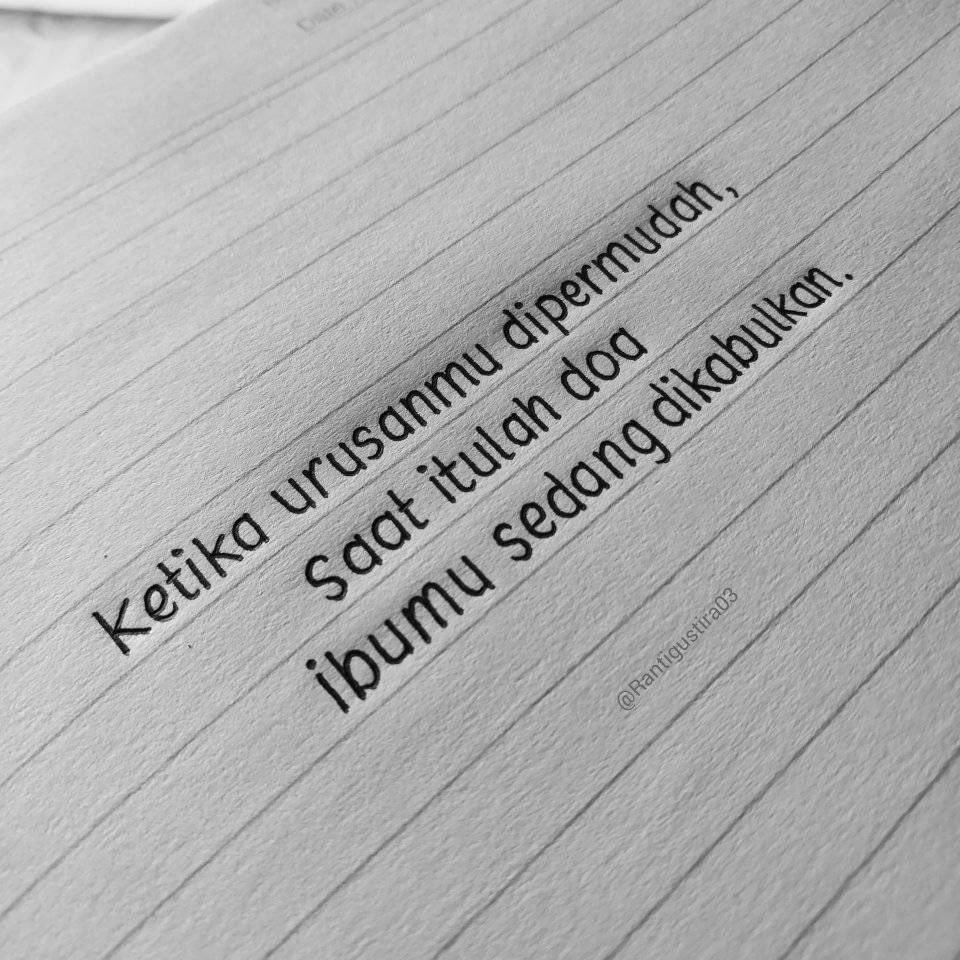 Date
ketika urusanmu dipermudah,
Saat itulah doa
ibumu sedang dikabulkan.
@Rantigustira03